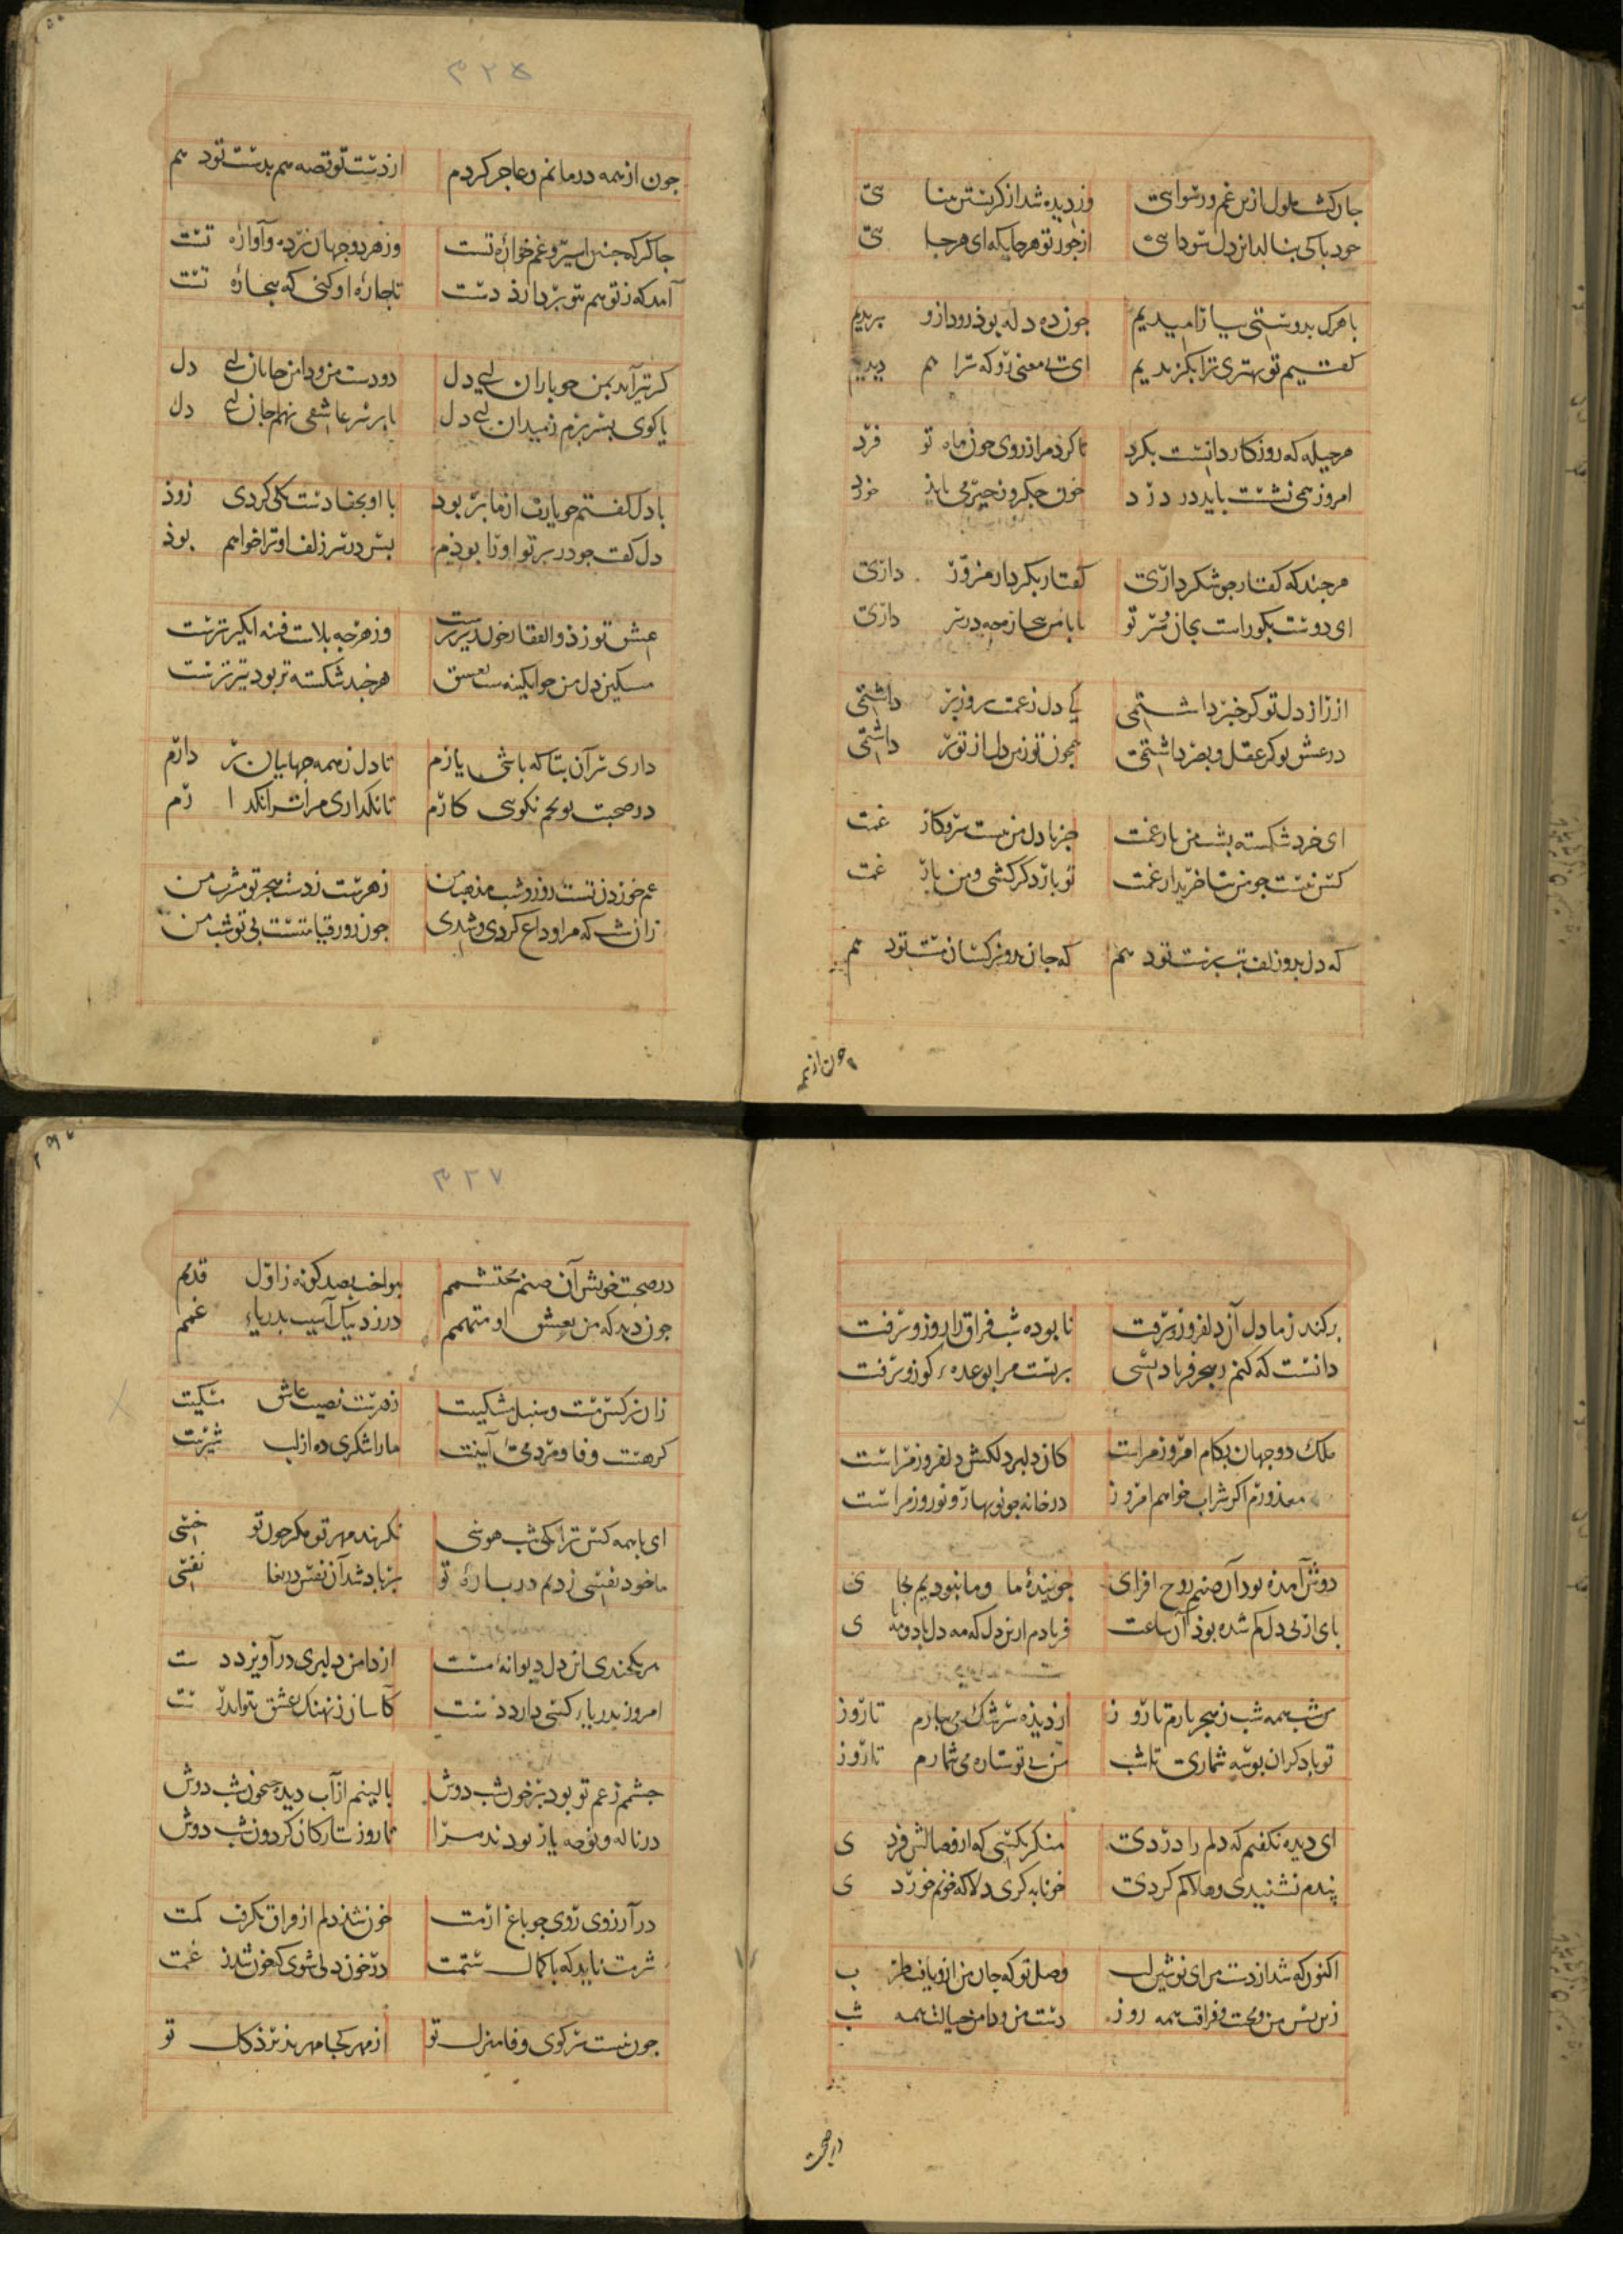 جان کشت ملول ازین غم و رسوایی وز دیده شد از کرستن بینایی
خود با کی بنالد این دل سودایی از جور تو هرجایکه ای هرجایی
با هرک بدوستی بیارامیدیم جون ده دله بوذ زود ازو ببریدیم
کفتیم تو بهتری ترا بکزیدیم ای بی معنی زو که ترا هم دیدیم
هر حیله که روزکار دانست بکرد تا کرد مرا ز روی جون ماه تو فرد
امروز همی نشست باید در درد خون جکر و می باید خورد
هرجند که کفتار جو شکر داری کفتار بکردار مزور داری
ای دوست بکو راست بجان و سر تو با ما سر جه در سر داری
از راز دل تو کر خبر داشتمی کی دل ز غمت بر داشتمی
در عشق تو کر عقل و بصر داشتمی همجون تو ز من دل از تو بر داشتمی
ای خرد شکسته بشت من بار غمت جز با دل من نیست سر و کار غمت
کس نیست جو من بتا خریدار غمت تو باز دکر کشی و من بار غمت
که دل بدو زلف بت برستت تو دهم که جان بدو نرکسان مستت تو دهم
جون از همه
۳۲۵
جون از همه درمانم و عاجر کردم از دست تو قصه هم بدست تو دهم
جاکر که جنین اسیر و غم خوارۀ تست وز هر دو جهان و آوارۀ تست
آمد که ز تو هم بتو بردارد دست تا جارۀ او کنی که بیجارۀ تست
کر تیر آید بمن جو باران ای دل دو دست من و دامن جانان ای دل
یا کوی بسر برم ز میدان ای دل یا بر سر عاشقی نهم جان ای دل
با دل کفتم جو یارت از ما بر بود با او بجفا دست یکی کردی زود
دل کفت جو در بر تو او را بودم بس در سر زلف او ترا خواهم بود
عشق تو ز ذوالفقار خون ریزترست وز هرجه بلاست فتنه انکیزترست
مسکین دل من جو آبکینه ست بعشق هرجند شکسته تر بود تیزترست
داری سر آن بتا که باشی یارم تا دل ز همه جهانیان بر دارم
در صحبت تو بجم نکویی کارم تا نکداری مرا ترا نکدارم
غم خوردن تست روز و شب مذهب من زهرست ز دست هجر تو مشرب من
زان شب که مرا وداع کردی و شدی جون روز قیامتست بی تو شب من
برکند ز ما دل آن دلفروز و برفت نابوده شب فراق را روز و برفت
دانست که کنم ز هجر فریاد بسی بربست مرا بوعده کوز و برفت
ملک دو جهان بکام امروز مراست کان دلبر دلکش دلفروز مراست
معذورم اکر شراب خواهم امروز در خانه جو نوبهار و نوروز مراست
دوش آمده بود آن صنم روح افزای جویندۀ ما و ما نبودیم بجای
بای از بی دل کم شده بوذ آن ساعت فریادم ازین دل که مه دل باد و مه بای
من شب همه شب ز هجر یارم تا روز از دیده سرشک می بارم تا روز
تو با دکران بوسه شماری تا شب من بی تو ستاره می شمارم تا روز
ای دیده نکفتیم که دلم را دردی منکر بکسی که از وصالش فردی
بندم نشنیدی و هلاکم کردی خونابه کری دلا که خونم خوردی
اکنون که شد از دست من ای نوشین لب وصل تو که جان من ازو یافت طرب
زین بس من و محنت فراقت همه روز دست من و دامن خیالت همه شب
در صحبت
۳۲۷
در صحبت خویش آن صنم محتشمم بنواخت بصد کونه ز اول قدمم
جون دید که من بعشق او متهمم در زد بیک آسیب بدریاء غمم
زان نرکس مست و سنبل مشکینت زهرست نصیب عاشق مسکینت
کر هست وفا و مردمی آیینت ما را شکری ده از لب شیرینت
ای با همه کس ترا یکی شب هوسی نکزیند مهر تو مکر جون تو خسی
ما خود نفسی زدیم در بارۀ تو بر باد شد آن نفس دریغا نفسی
هر یکجندی این دل دیوانۀ مست از دامن دلبری در آویزد دست
امروز بدریاء کسی دارد شست کاسان ز نهنک عشق نتواند رست
جشمم ز غم تو بود بر خون شب دوش بالینم از آب دیده جیحون شب دوش
در ناله و نوحه یار بودند مرا تا روز ستارکان کردون شب دوش
در آرزوی روی جو باغ ارمت خون شد دلم از فراق نکرفت کمت
شرمت ناید که با کمال ستمت در خون دلی شوی که خون شد ز غمت
جون نیست سر کوی وفا منزل تو از مهر کجا مهر بذیرد کل تو